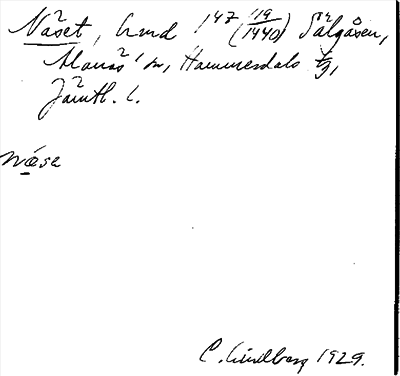 Näset, hmd 1⁴⁷ (119/1440) Tälgåsen,
Alanäs sn, Hammerdals tg,
Jämtl. l.
næ̀se
C. Lindberg 1929.